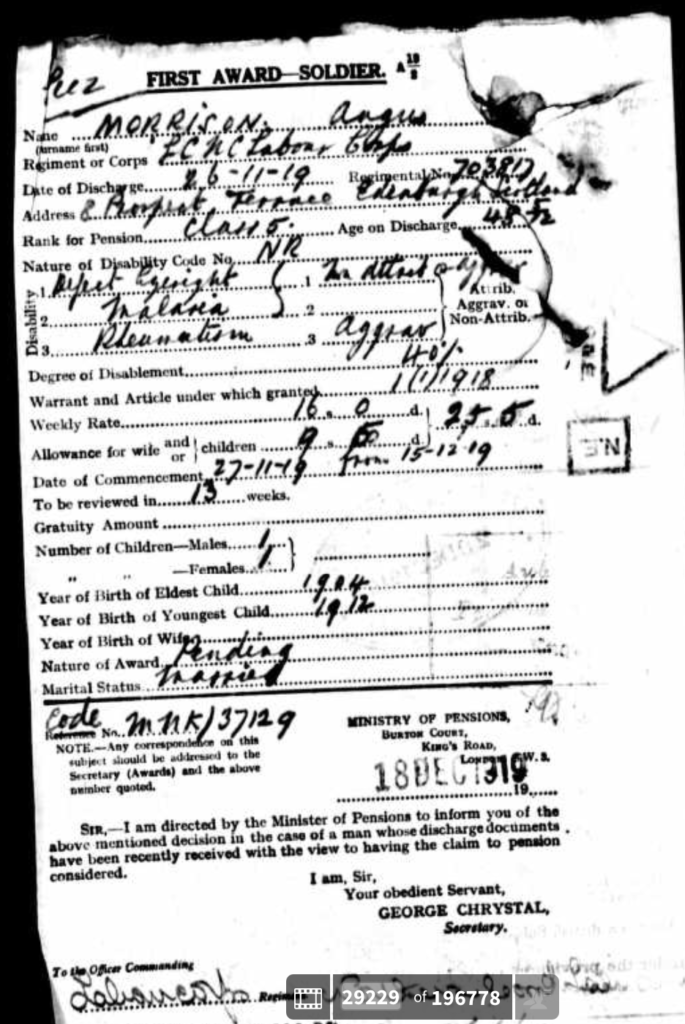 FIRST AWARD—SOLDIER. A 19/8
Name MORRISON. Angus
(surname first)
Regiment or Corps ECNC Labour Corps
Date of Discharge 26-11-19 Regimental No. 703817
Address 8 Prospect Terrace Edinburgh Scotland
Rank for Pension Class 5. Age on Discharge 48 5/12
Nature of Disability Code No. NR
Disability
1 Defect Eyesight 1
2 Malaria 2
3 Rheumatism 3 Aggrav
Attrib.
Aggrav. or
Non-Attrib.
Degree of Disablement 40%
Warrant and Article under which granted 1(1)1918
Weekly Rate 16 s. 0 d. 25 s. 5 d.
Allowance for wife and or children 9 s. 5 d.
Date of Commencement 27-11-19 from 15-12-19
To be reviewed in 13 weeks.
Gratuity Amount
Number of Children—Males 1
" " —Females 1
Year of Birth of Eldest Child 1904
Year of Birth of Youngest Child 1912
Year of Birth of Wife
Nature of Award Pending
Marital Status Married
Code
Reference No. MNK/37129
NOTE.—Any correspondence on this
subject should be addressed to the
Secretary (Awards) and the above
number quoted.
MINISTRY OF PENSIONS,
BURTON COURT,
KING'S ROAD,
LONDON, S.W. 3.
18 DEC 1919
19
SIR,—I am directed by the Minister of Pensions to inform you of the
above mentioned decision in the case of a man whose discharge documents
have been recently received with the view to having the claim to pension
considered.
I am, Sir,
Your obedient Servant,
GEORGE CHRYSTAL,
Secretary.
To the Officer Commanding
Labour Corps
29229 of 196778